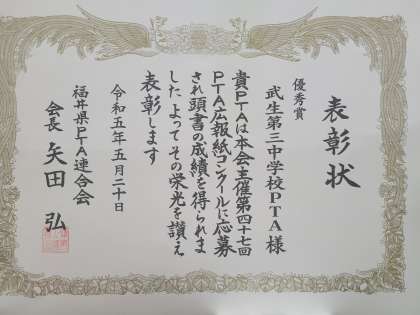 表彰状
優秀賞
武生第三中学校PTA様
貴PTAは本会主催第四十七回
PTA広報紙コンクールに応募
され頭書の成績を得られま
したよってその栄光を讃え
表彰します
令和五年五月二十日
福井県PTA連合会
会長 矢田 弘